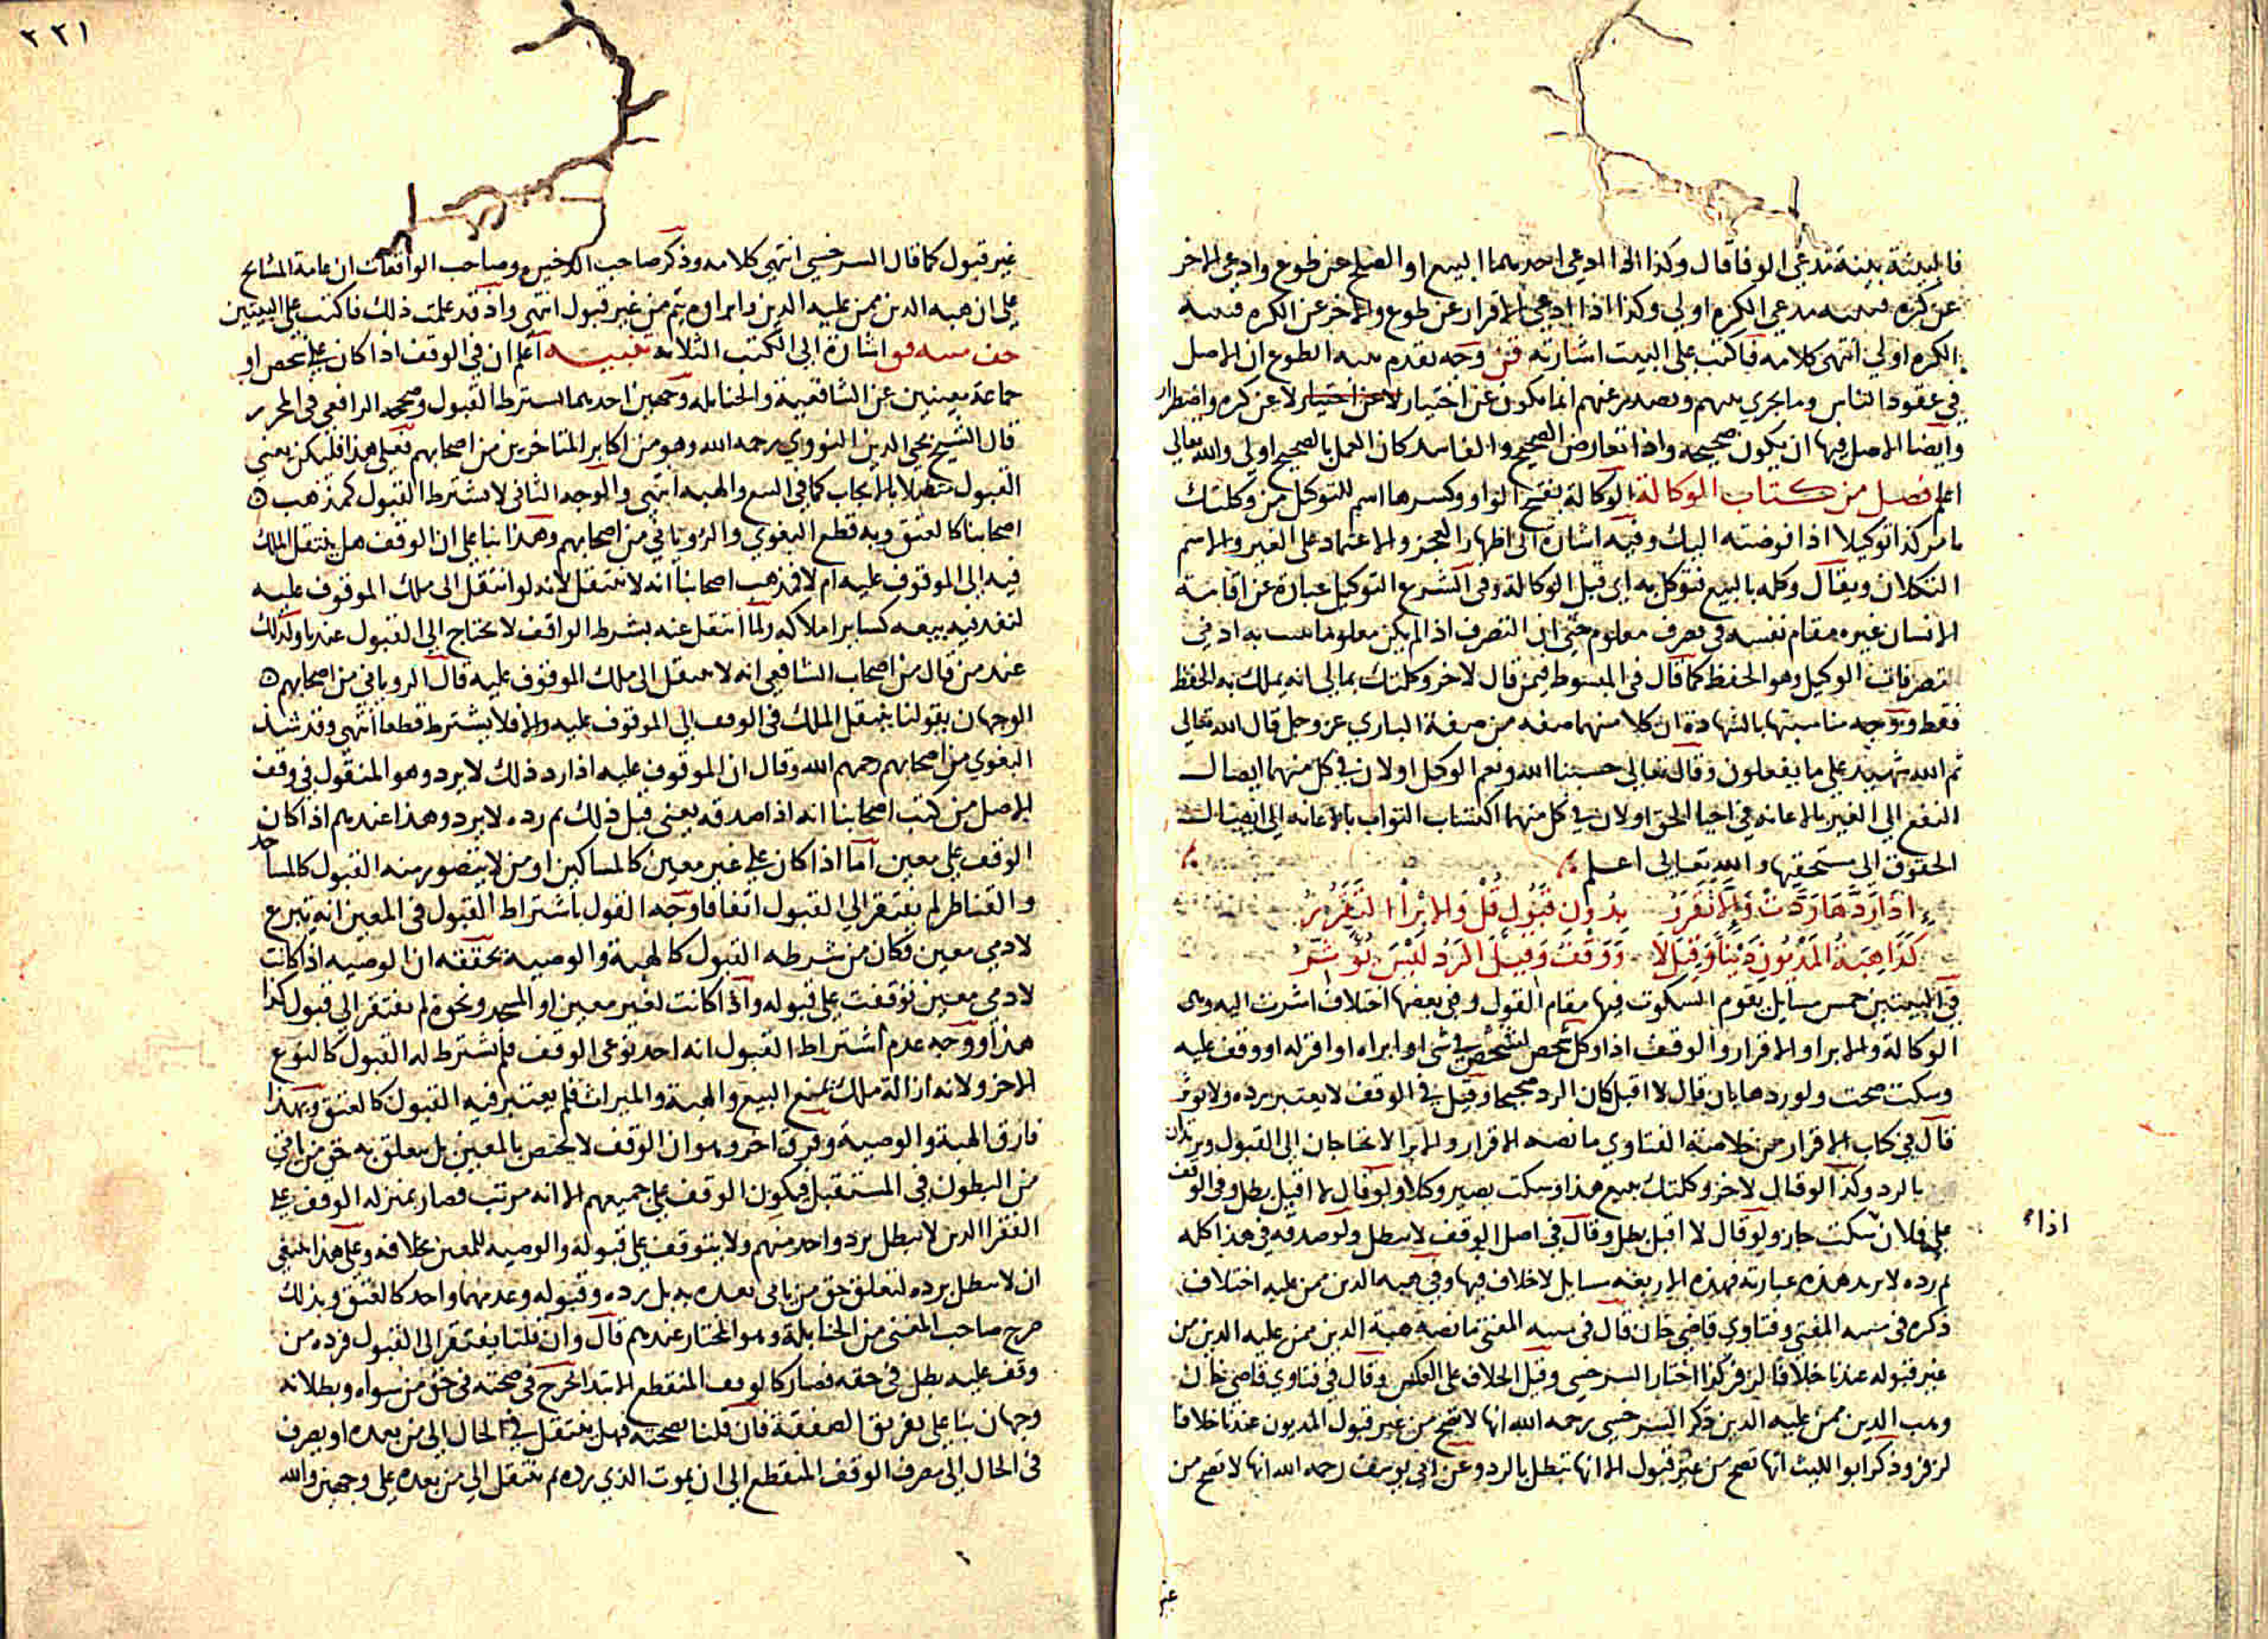 فالبينة بينة مدعي الوفا قال وكذا اذا ادعى احدهما البيع او الصلح عن طوع وادعى الاخر
عن كره فبينه مدعي الكره اولى وكذا اذا ادعى الاقرار عن طوع والاخر عن الكره فبينه
الكره اولى انتهى كلامه فاكتب على البيت اشارته قن وجه تقدم بينه الطوع ان الاصل
في عقود الناس وما يجري بينهم ويصدر عنهم انما يكون عن اختيار لا عن اختيار لا عن كره واضطرار
وايضا الاصل فيها ان يكون صحيحه واذا تعارض الصحيح والفاسد كان العمل بالصحيح اولى والله تعالى
اعلم فصل من كتاب الوكالة الوكالة بفتح الواو وكسرها اسم للتوكل من وكلتك
بامر كذا توكيلا اذا فوضته اليك وفيه اشارة الى اظهار العجز والاعتماد على الغير والاسم
التكلان ويقال وكله بالبيع فتوكل به اي قبل الوكالة وفي الشرع التوكيل عبارة عن اقامة
الانسان غيره مقام نفسه في تصرف معلوم حتى ان التصرف اذا لم يكن معلوما ثبت به ادنى
تصرفات الوكيل وهو الحفظ كما قال في المبسوط فيمن قال لاخر وكلتك بمالي انه يملك به الحفظ
فقط ووجه مناسبتها بالشهادة ان كلا منهما صفه من صفة الباري عز وجل قال الله تعالى
ثم الله شهيد على ما يفعلون وقال تعالى حسبنا الله ونعم الوكيل او لان في كل منهما ايصال
النفع الى الغير بالاعانه في احيا الحق او لان في كل منهما اكتساب الثواب بالاعانه الى ايصال
الحقوق الى مستحقها والله تعالى اعلم
اذا رَدَّهَا رُدَّتْ وَالَّا تَقَرَّرُ بِدُونِ قَبُولٍ قُلْ وَالابْرَاْ التَّقَرُّرُ
كَذَا هِبَةُ المَدْيُونِ دَيْنًا وَقِيلَ لَا وَوَقْفٌ وَقِيلَ الرَدُّ لَيْسَ يُؤَثِّرُ
في البيتين خمس مسايل يقوم السكوت فيها مقام القول وفي بعضها اختلاف اشرت اليه وهى
الوكالة والابرا والاقرار والوقف اذا وكل شخص لشخص في شي او ابراه او اقر له او وقف عليه
وسكت صحت ولو ردها بان قال لا اقبل كان الرد صحيحا وقيل في الوقف لا يعتبر برده ولا يوثر
قال في كتاب الاقرار من خلاصة الفتاوي ما نصه الاقرار والابرا لا يحتاجان الى القبول ويرتدان
بالرد وكذا لو قال لاخر وكلتك ببيع هذا وسكت يصير وكلا ولو قال لا اقبل بطل وفي الوقف
على فلان سكت جاز ولو قال لا اقبل بطل وقال في اصل الوقف لا يبطل ولو صدقه في هذا كله
اذاء
ثم رده لا يرتد هذه عبارته فهذه الاربعه مسايل لا خلاف فيها وفي هبه الدين ممن عليه اختلاف
ذكره في منيه المفتي وفتاوي قاضي خان قال في منيه المفتي ما نصه هبة الدين ممن عليه الدين من
غير قبوله عندنا خلافا لزفر كذا اختار السرخسي وقيل الخلاف على العكس وقال في فتاوي قاضي خان
وهب الدين ممن عليه الدين ذكر السرخسي رحمه الله انها لا تصح من غير قبول المديون عندنا خلافا
لزفر وذكر ابو الليث انها تصح من غير قبول الا انها تبطل بالرد وعن ابي يوسف رحمه الله انها لا تصح من
غير
٣٣١
غير قبول كما قال السرخسي انتهى كلامه وذكر صاحب الذخيره وصاحب الواقعات ان عامة المشايخ
على ان هبه الدين ممن عليه الدين وابراوه يتم من غير قبول انتهى واذ قد علمت ذلك فاكتب على البيتين
منيه فو اشارة الى الكتب الثلاثه تنبيه اعلم ان في الوقف اذا كان على شخص او
جماعة معينين عن الشافعية والحنابله وجهين احدهما اشتراط القبول وصححه الرافعي في المحرر
قال الشيخ محي الدين النووي رحمه الله وهو من اكابر المتاخرين من اصحابهم فعلى هذا فليكن يعني
القبول متصلا بالايجاب كما في البيع والهبه انتهى والوجه الثاني لا يشترط القبول كمذهب
اصحابنا كالعتق وبه قطع البغوي والروياني من اصحابهم وهذا بنا على ان الوقف هل ينتقل الملك
فيه الى الموقوف عليه ام لا فذهب اصحابنا انه لا ينتقل لانه لو انتقل الى ملك الموقوف عليه
لنفذ فيه بيعه كساير املاكه ولما انتقل عنه بشرط الواقف لا يحتاج الى القبول عندنا وكذلك
عند من قال من اصحاب الشافعي انه لا ينتقل الى ملك الموقوف عليه قال الروياني من اصحابهم
الوجهان بقولنا ينتقل الملك في الوقف الى الموقوف عليه والا فلا يشترط قطعا انتهى وقد شذ
البغوي من اصحابهم رحمهم الله وقال ان الموقوف عليه اذا رد ذلك لا يرد وهو المنقول في وقف
الاصل من كتب اصحابنا انه اذا صدقه يعني قبل ذلك ثم رده لا يرد وهذا عندهم اذا كان
الوقف على معين اما اذا كان على غير معين كالمساكين او من لا يتصور منه القبول كالمساجد
والقناطر لم يفتقر الى القبول اتفاقا وجه القول باشتراط القبول في المعين انه تبرع
لادمي معين فكان من شرطه القبول كالهبة والوصية تحققه ان الوصيه اذا كانت
لادمي معين توقفت على قبوله واذا كانت لغير معين او المسجد ونحوه لم يفتقر الى قبول كذا
هذا ووجه عدم اشتراط القبول انه احد نوعى الوقف فلم يشترط له القبول كالنوع
الاخر ولانه ازالة ملك يمنع البيع والهبة والميراث فلم يعتبر فيه القبول كالعتق وبهذا
فارق الهبة والوصية وفرق اخر وهو ان الوقف لا يختص بالمعين بل يتعلق به حق من ياتي
من البطون في المستقبل فيكون الوقف على جميعهم الا انه مرتب فصار بمنزله الوقف على
الفقرا الذين لا يبطل برد واحد منهم ولا يتوقف على قبوله والوصيه للمعين بخلافه وعلى هذا ينبغي
ان لا يبطل برده لتعلق حق من ياتي بعده به بل برده وقبوله وعدمهما واحد كالعتق وبذلك
صرح صاحب المغني من الحنابلة وهو المختار عندهم قال وان قلنا يفتقر الى القبول فرده من
وقف عليه بطل في حقه فصار كالوقف المنقطع الابتدا يخرج في صحته في حق من سواه وبطلانه
وجهان بنا على تفريق الصفقة فان قلنا بصحته فهل ينتقل في الحال الى من بعده او يصرف
في الحال الى مصرف الوقف المنقطع الى ان يموت الذي رده ثم ينتقل الى من بعده على وجهين والله